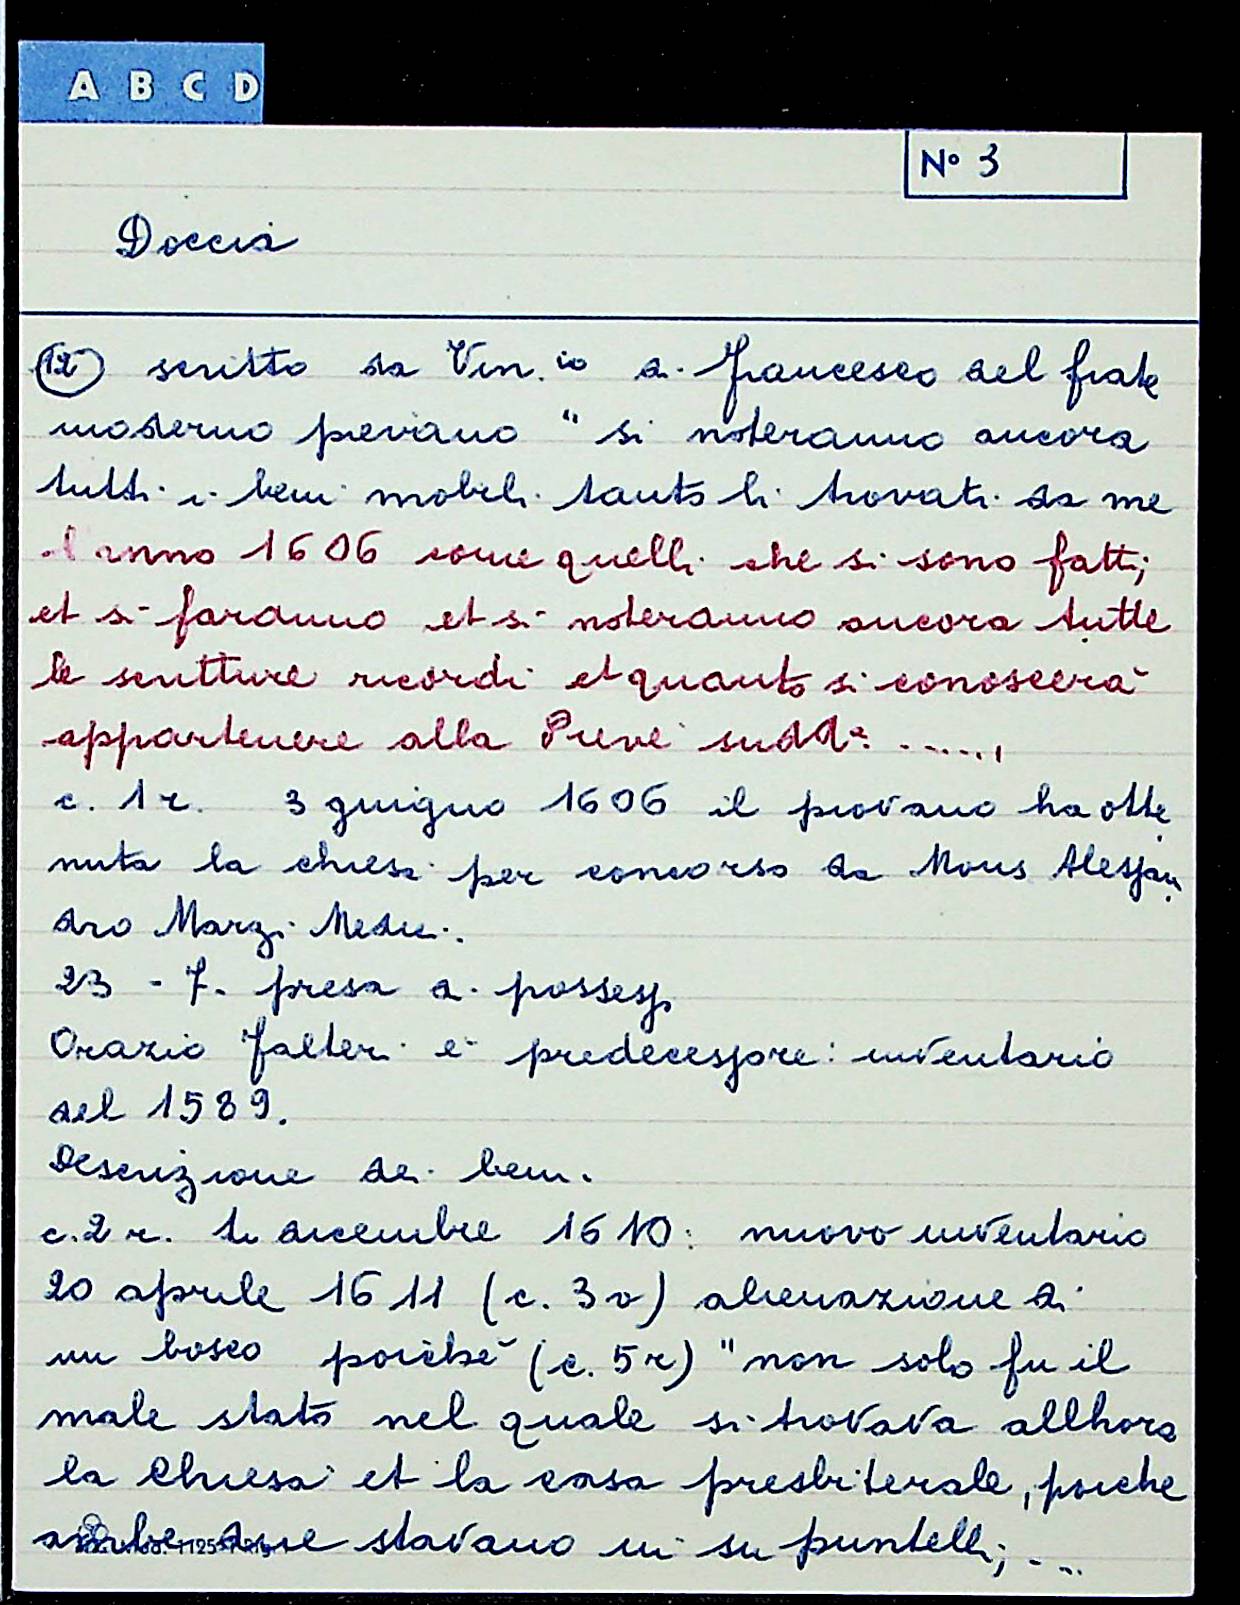 A B C D
N° 3
Doccia
12 scritto da Vin.io di Francesco del frate
moderno pievano " si noteranno ancora
tutti i beni mobili tanto li trovati da me
l'anno 1606 come quelli che si sono fatti;
et si faranno et si noteranno ancora tutte
le scritture ricordi et quanto si conoscerà
appartenere alla Pieve sudda. .....,
c. 1 r. 3 giugno 1606 il piovano ha otte
nuta la chiesa per concorso da Mons Alessan
dro Marzi Medici.
23 - 7. presa di possesso
Orazio Falteri è predecessore: inventario
del 1589.
Descrizione dei beni.
c. 2 r. dicembre 1610: nuovo inventario
20 aprile 1611 (c. 3 v) alienazione di
un bosco poichè (c. 5 r) "non solo fu il
male stato nel quale si trovava allhora
la Chiesa et la casa presbiterale, poiche
ambe due stavano in su puntelli; ...